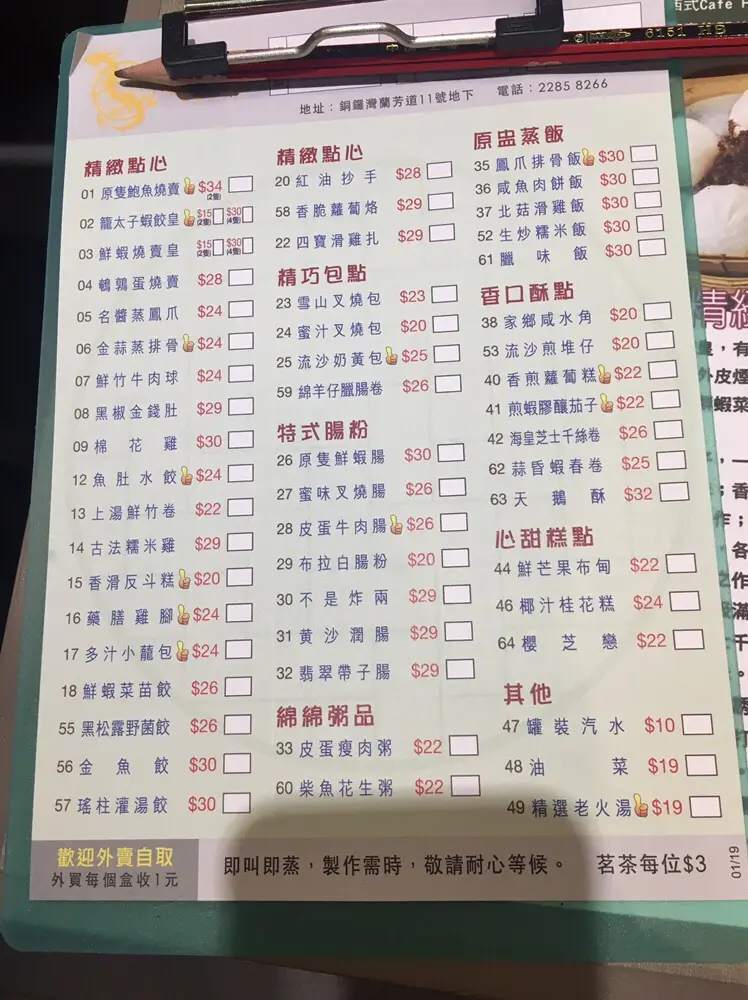 西式Cafe
6151 HB
地址：銅鑼灣蘭芳道11號地下 電話：2285 8266
精緻點心
01 原隻鮑魚燒賣 $34 (2隻)
02 龍太子蝦餃皇 $15 (2隻) $30 (4隻)
03 鮮蝦燒賣皇 $15 (2隻) $30 (4隻)
04 鵪鶉蛋燒賣 $28
05 名醬蒸鳳爪 $24
06 金蒜蒸排骨 $24
07 鮮竹牛肉球 $24
08 黑椒金錢肚 $29
09 棉花雞 $30
12 魚肚水餃 $24
13 上湯鮮竹卷 $22
14 古法糯米雞 $29
15 香滑反斗糕 $20
16 藥膳雞腳 $24
17 多汁小蘢包 $24
18 鮮蝦菜苗餃 $26
55 黑松露野菌餃 $26
56 金魚餃 $30
57 瑤柱灌湯餃 $30
精緻點心
20 紅油抄手 $28
58 香脆蘿蔔烙 $29
22 四寶滑雞扎 $29
精巧包點
23 雪山叉燒包 $23
24 蜜汁叉燒包 $20
25 流沙奶黃包 $25
59 綿羊仔臘腸卷 $26
特式腸粉
26 原隻鮮蝦腸 $30
27 蜜味叉燒腸 $26
28 皮蛋牛肉腸 $26
29 布拉白腸粉 $20
30 不是炸兩 $29
31 黄沙潤腸 $29
32 翡翠帶子腸 $29
綿綿粥品
33 皮蛋瘦肉粥 $22
60 柴魚花生粥 $22
原盅蒸飯
35 鳳爪排骨飯 $30
36 咸魚肉餅飯 $30
37 北菇滑雞飯 $30
52 生炒糯米飯 $30
61 臘味飯 $30
香口酥點
38 家鄉咸水角 $20
53 流沙煎堆仔 $20
40 香煎蘿蔔糕 $22
41 煎蝦膠釀茄子 $22
42 海皇芝士千絲卷 $26
62 蒜香蝦春卷 $25
63 天鵝酥 $32
心甜糕點
44 鮮芒果布甸 $22
46 椰汁桂花糕 $24
64 櫻芝戀 $22
其他
47 罐裝汽水 $10
48 油菜 $19
49 精選老火湯 $19
歡迎外賣自取
外買每個盒收1元
即叫即蒸，製作需時，敬請耐心等候。 茗茶每位$3
01/19